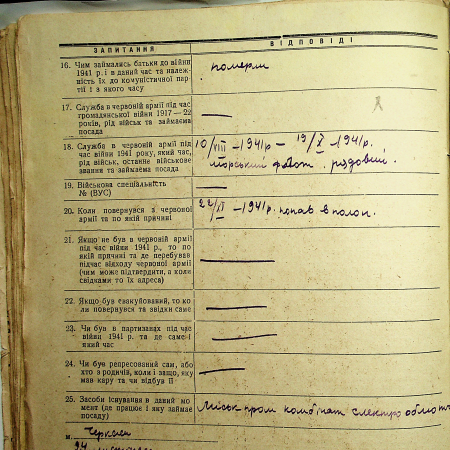 ЗАПИТАННЯ
ВІДПОВІДІ
16. Чим займались батьки до війни
1941 р. і в даний час та належ-
ність їх до комуністичної пар-
тії і з якого часу
померли
17. Служба в червоній армії під час
громадянської війни 1917—22
років, рід військ та займаєма
посада
—
18. Служба в червоній армії під
час війни 1941 року, який час,
рід військ, останнє військове
звання та займаєма посада
10/VIII — 1941 — 19/X — 1941 р.
морський флот. рядовий.
19. Військова спеціальність
№ (ВУС)
—
20. Коли повернувся з червоної
армії та по якій причині
— 1941 р. попав в полон.
21. Якщо не був в червоній армії
під час війни 1941 р., то по
якій причині та де перебував
підчас відходу червоної армії
(чим може підтвердити, а коли
свідками то їх адреса)
—
22. Якщо був евакуйований, то ко-
ли повернувся та звідки саме
—
23. Чи був в партизанах під час
війни 1941 р. та де саме і
який час
—
24. Чи був репресований сам, або
хто з родичів, коли і защо, яку
мав кару та чи відбув її
—
25. Засоби існування в даний мо-
мент (де працює і яку займає
посаду)
Міськ пром комбінат електро
м. Черкаси
24